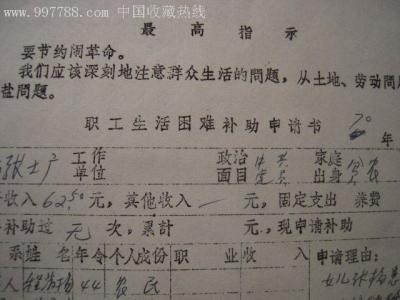 www.997788.com 中国收藏热线
最高指示
要节约闹革命。
我们应该深刻地注意群众生活的问题，从土地、劳动问
盐问题。
职工生活困难补助申请书 70年
张士广 工作单位 政治面目 中共党员 家庭出身 贫农
收入62.50元，其他收入 — 元，固定支出 养费
补助过 无 次，累计 元，现申请补助
系 姓名 年令 个人成份 职业 收入 申请理由：
人 44 农民 女儿